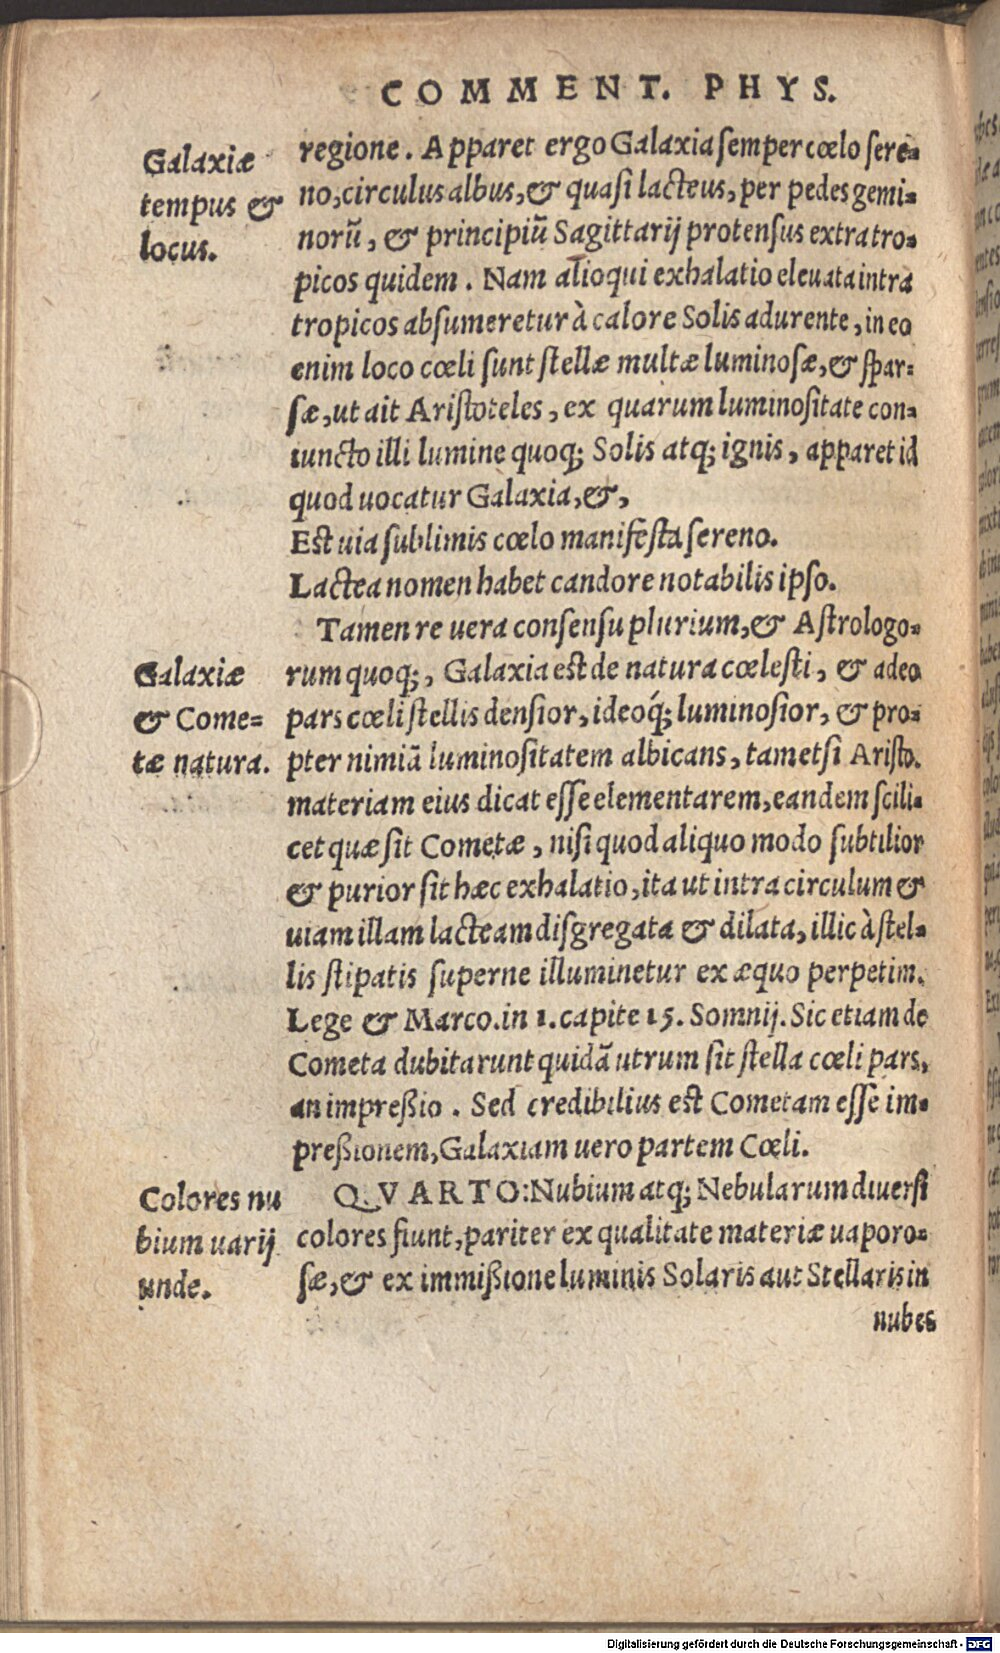 COMMENT. PHYS.
Galaxiæ
tempus &
locus.
regione. Apparet ergo Galaxia semper cœlo sere-
no, circulus albus, & quasi lacteus, per pedes gemi-
norũ, & principiũ Sagittarij protensus extra tro-
picos quidem. Nam alioqui exhalatio eleuata intra
tropicos absumeretur à calore Solis adurente, in eo
enim loco cœli sunt stellæ multæ luminosæ, & spar-
sæ, ut ait Aristoteles, ex quarum luminositate con-
iuncto illi lumine quoq; Solis atq; ignis, apparet id
quod uocatur Galaxia, &,
Est uia sublimis cœlo manifesta sereno.
Lactea nomen habet candore notabilis ipso.
Tamen re uera consensu plurium, & Astrologo-
Galaxiæ
& Come-
tæ natura.
rum quoq;, Galaxia est de natura cœlesti, & adeo
pars cœli stellis densior, ideoq́; luminosior, & pro-
pter nimiã luminositatem albicans, tametsi Aristo.
materiam eius dicat esse elementarem, eandem scili-
cet quæ sit Cometæ, nisi quod aliquo modo subtilior
& purior sit hæc exhalatio, ita ut intra circulum &
uiam illam lacteam disgregata & dilata, illic à stel-
lis stipatis superne illuminetur ex æquo perpetim.
Lege & Marco. in 1. capite 15. Somnij. Sic etiam de
Cometa dubitarunt quidã utrum sit stella cœli pars,
an impreßio. Sed credibilius est Cometam esse im-
preßionem, Galaxiam uero partem Cœli.
Colores nu
bium uarij
unde.
QVARTO: Nubium atq; Nebularum diuersi
colores fiunt, pariter ex qualitate materiæ uaporo-
sæ, & ex immißione luminis Solaris aut Stellaris in
nubes
Digitalisierung gefördert durch die Deutsche Forschungsgemeinschaft - DFG